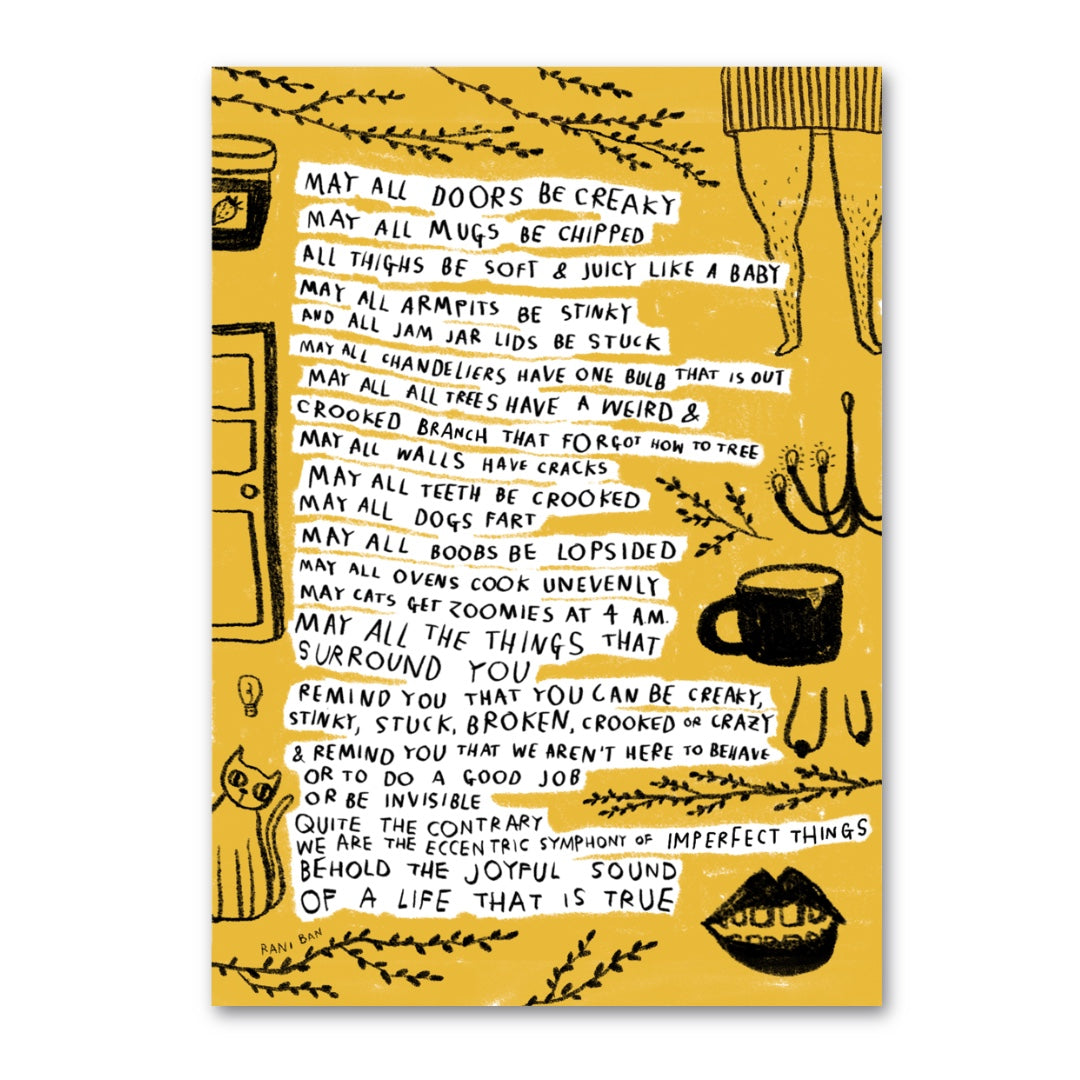 MAY ALL DOORS BE CREAKY
MAY ALL MUGS BE CHIPPED
ALL THIGHS BE SOFT & JUICY LIKE A BABY
MAY ALL ARMPITS BE STINKY
AND ALL JAM JAR LIDS BE STUCK
MAY ALL CHANDELIERS HAVE ONE BULB THAT IS OUT
MAY ALL ALL TREES HAVE A WEIRD &
CROOKED BRANCH THAT FORGOT HOW TO TREE
MAY ALL WALLS HAVE CRACKS
MAY ALL TEETH BE CROOKED
MAY ALL DOGS FART
MAY ALL BOOBS BE LOPSIDED
MAY ALL OVENS COOK UNEVENLY
MAY CATS GET ZOOMIES AT 4 A.M.
MAY ALL THE THINGS THAT
SURROUND YOU
REMIND YOU THAT YOU CAN BE CREAKY,
STINKY, STUCK, BROKEN, CROOKED OR CRAZY
& REMIND YOU THAT WE AREN'T HERE TO BEHAVE
OR TO DO A GOOD JOB
OR BE INVISIBLE
QUITE THE CONTRARY
WE ARE THE ECCENTRIC SYMPHONY OF IMPERFECT THINGS
BEHOLD THE JOYFUL SOUND
OF A LIFE THAT IS TRUE
RANI BAN